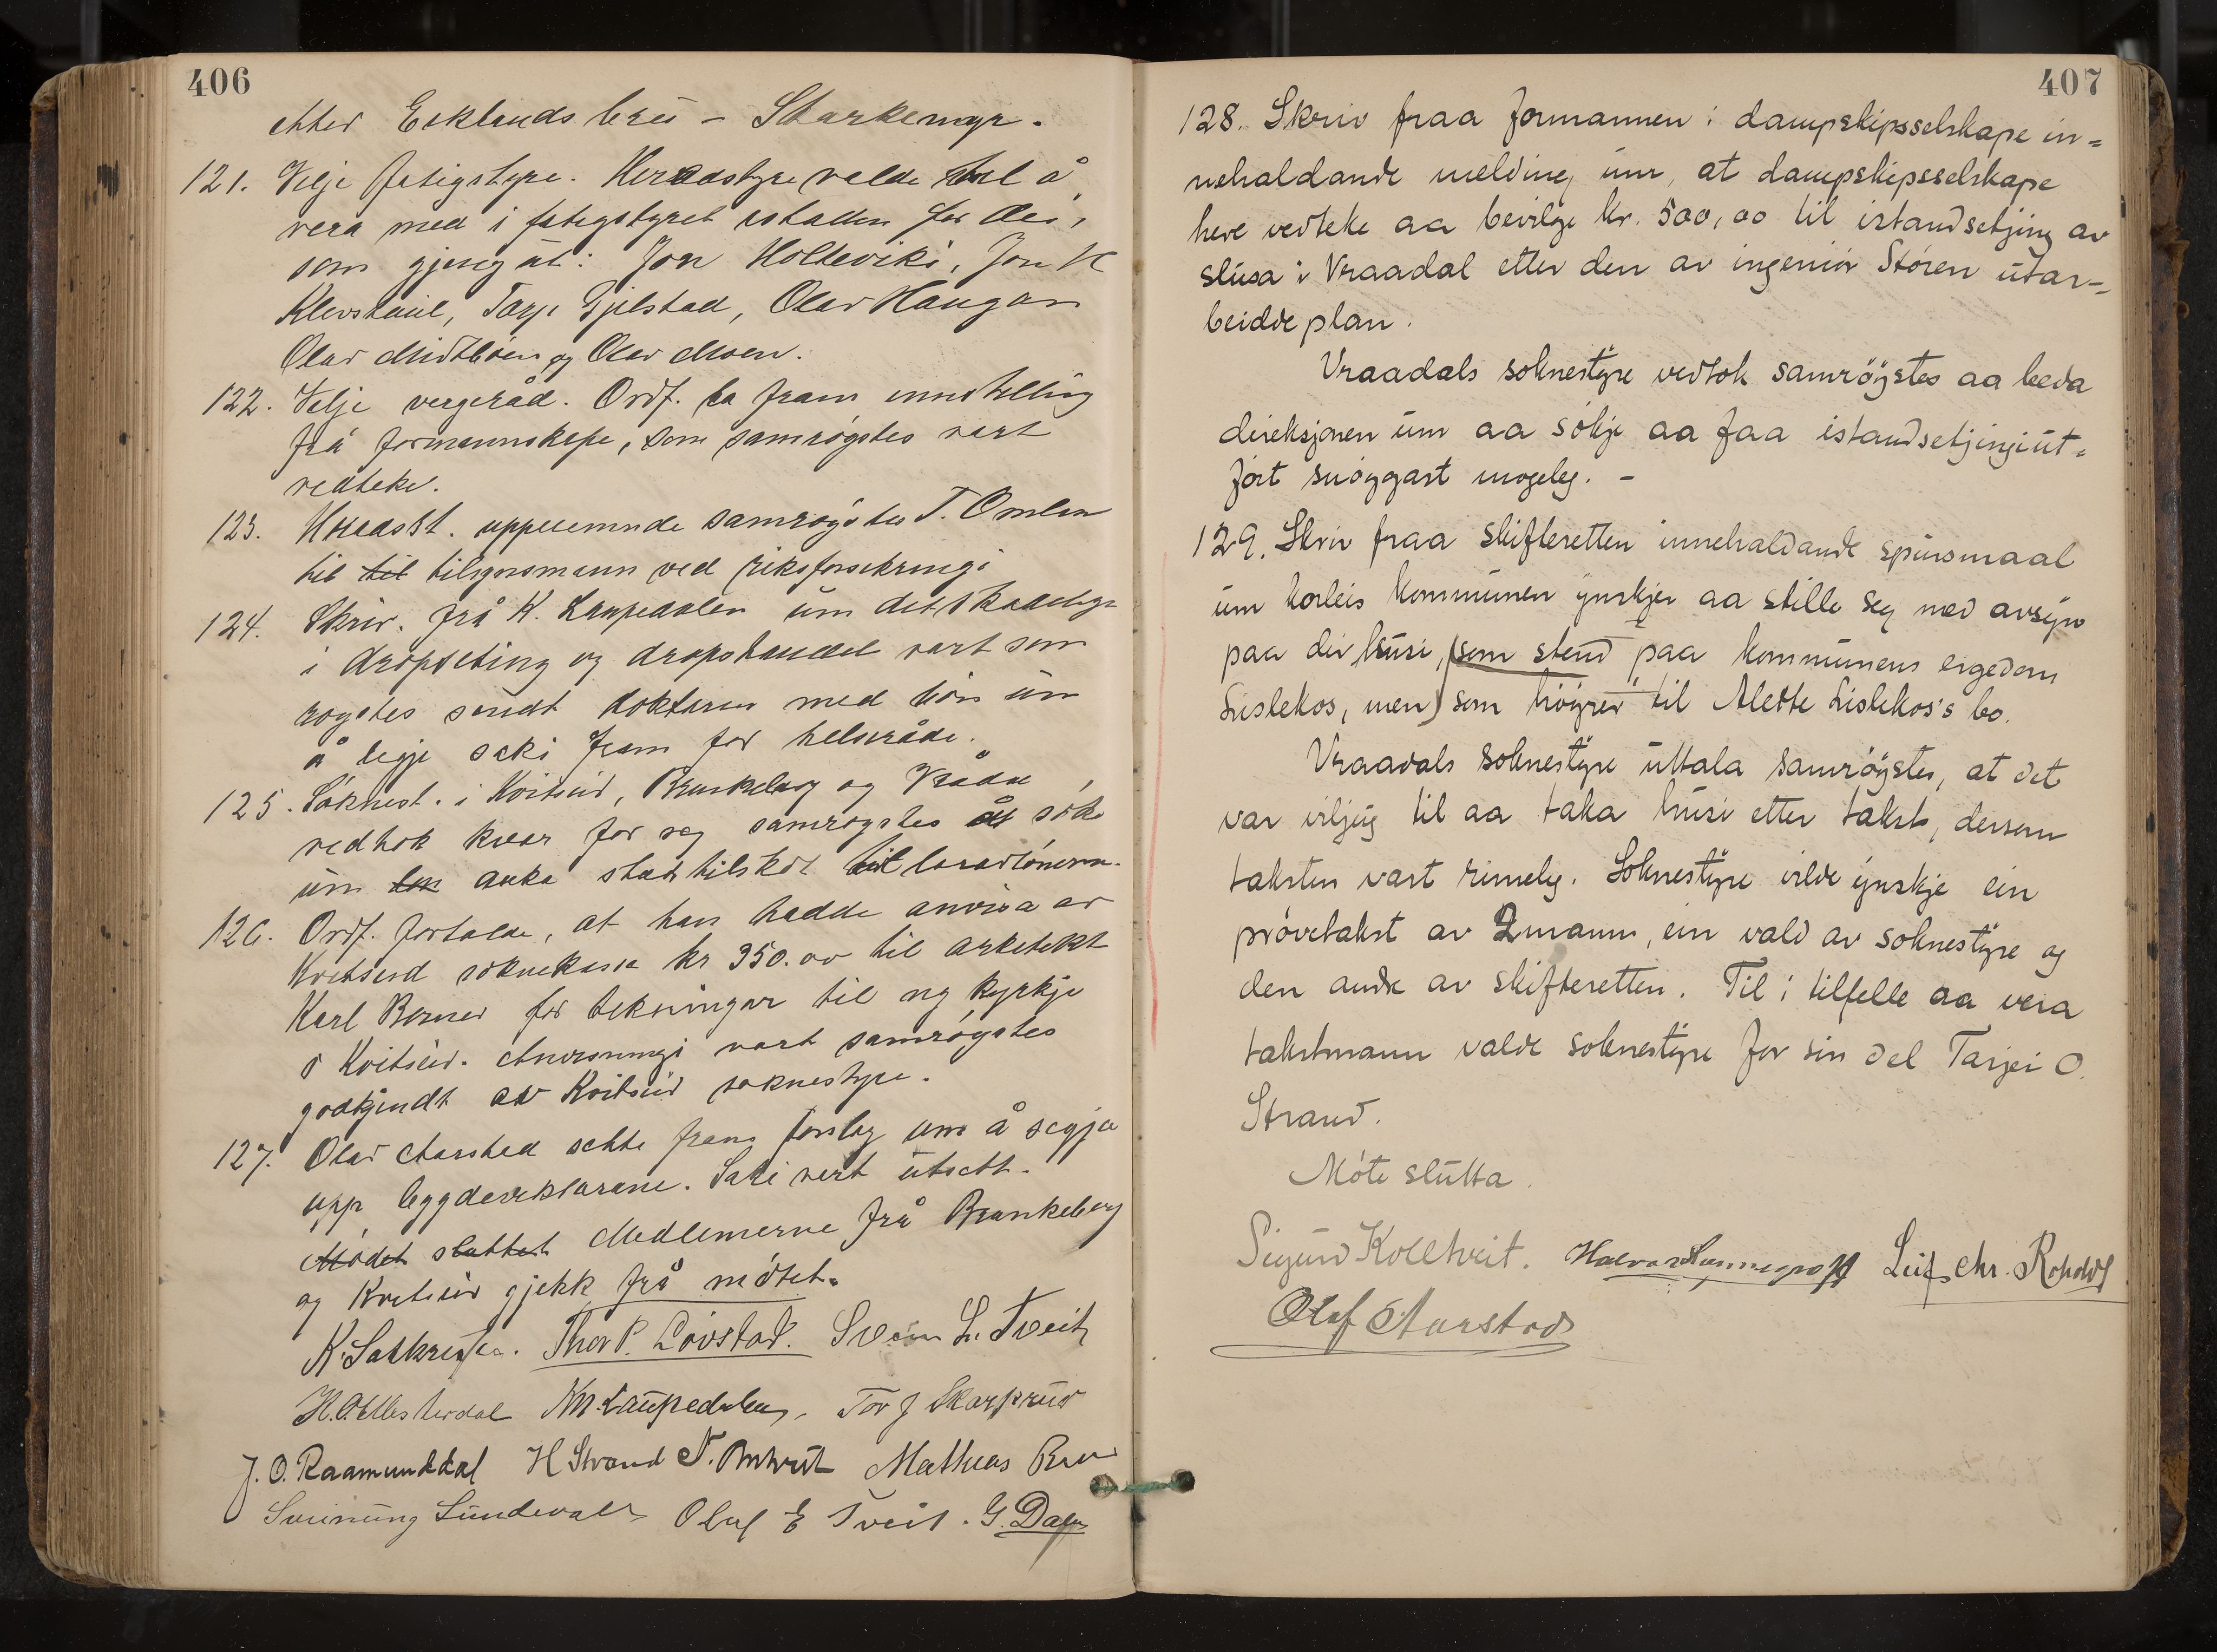 406
etter Eeklands bru - Starkemyr.
121. Velje fatigstyre. Heradstyre valde til å
vera med i fatigstyret istaden for dei,
som gjeng ut: Jon Holteviki, Jon K
Klevstaul, Tarje Gjelstad, Olav Haugan
Olav Midtbøen og Olav Moen.
122. Velje vergeråd. Ordf. la fram innstilling
frå formannskape, som samrøgstes vart
vedteke.
123. Heradsst. uppnemnde samrøgstes T. Omlien
til til tilsynsmann ved riksforsikringi
124. Skriv. frå K. Laupedalen um det skadelige
i dropseting og dropshandel vart sam
rogstes sendt doktaren med bøn um
å legje saki fram for helseråde.
125. Søknest. i Kvitseid, Brunkeberg og Vrådal
vedtok kvar for seg samrøgstes å søke
um auka statstilskot til lærarlønerne.
126. Ordf. fortalde, at han hadde anvisa av
Kvitseid soknekassa kr 350.00 til arkitekt
Karl Berner for tekningar til ny kyrkje
i Kvitseid. Anvisningi vart samrøgstes
godkjendt av Kvitseid soknestyre.
127. Olav Aarstad sette fram forslag um å segja
upp bygdevektarane. Saki vert utsett.
Mødet sluttet Medlemerne frå Brunkeberg
og Kvitseid gjekk frå møtet.
Thor P. Lövstad. Svein L. Tveit
Kn. Laupedalen, Tov J Skarprud
J. O. Raamunddal H Strand Mathias
Sveinung Sundevall Oluf E Tveit. G. Dalen
407
128. Skriv fraa formannen i dampskipsselskape in=
nehaldande melding um, at dampskipsselskape
heve vedteke aa bevilge kr. 500,00 til istandsetjing av
slusa i Vraadal etter den av ingeniør Støren utar-
beidde plan.
Vraadals soknestyre vedtok samrøystes aa beda
direksjonen um aa søkje aa faa istandsetjingi ut=
ført snøggast mogeleg. -
129. Skriv fraa skifteretten innehaldande spursmaal
um korleis kommunen ynskjer aa stille seg med avsyn
paa dei husi, (som stend paa kommunens eigedom
Lislekos, men) som høyrer til Alette Lislekos's bo.
Vraadals soknestyre uttala samrøystes, at det
var viljug til aa taka husi etter takst, dersom
taksten vart rimeleg. Soknestyre vilde ynskje ein
prøvetakst av 2 mann, ein vald av soknestyre og
den andre av skifteretten. Til i tilfelle aa vera
takstmann valde soknestyre for sin del Tarjei O.
Strand.
Møte slutta.
Sigurd Kolltveit. Leif Chr. Roholdt
Olaf Aarstad